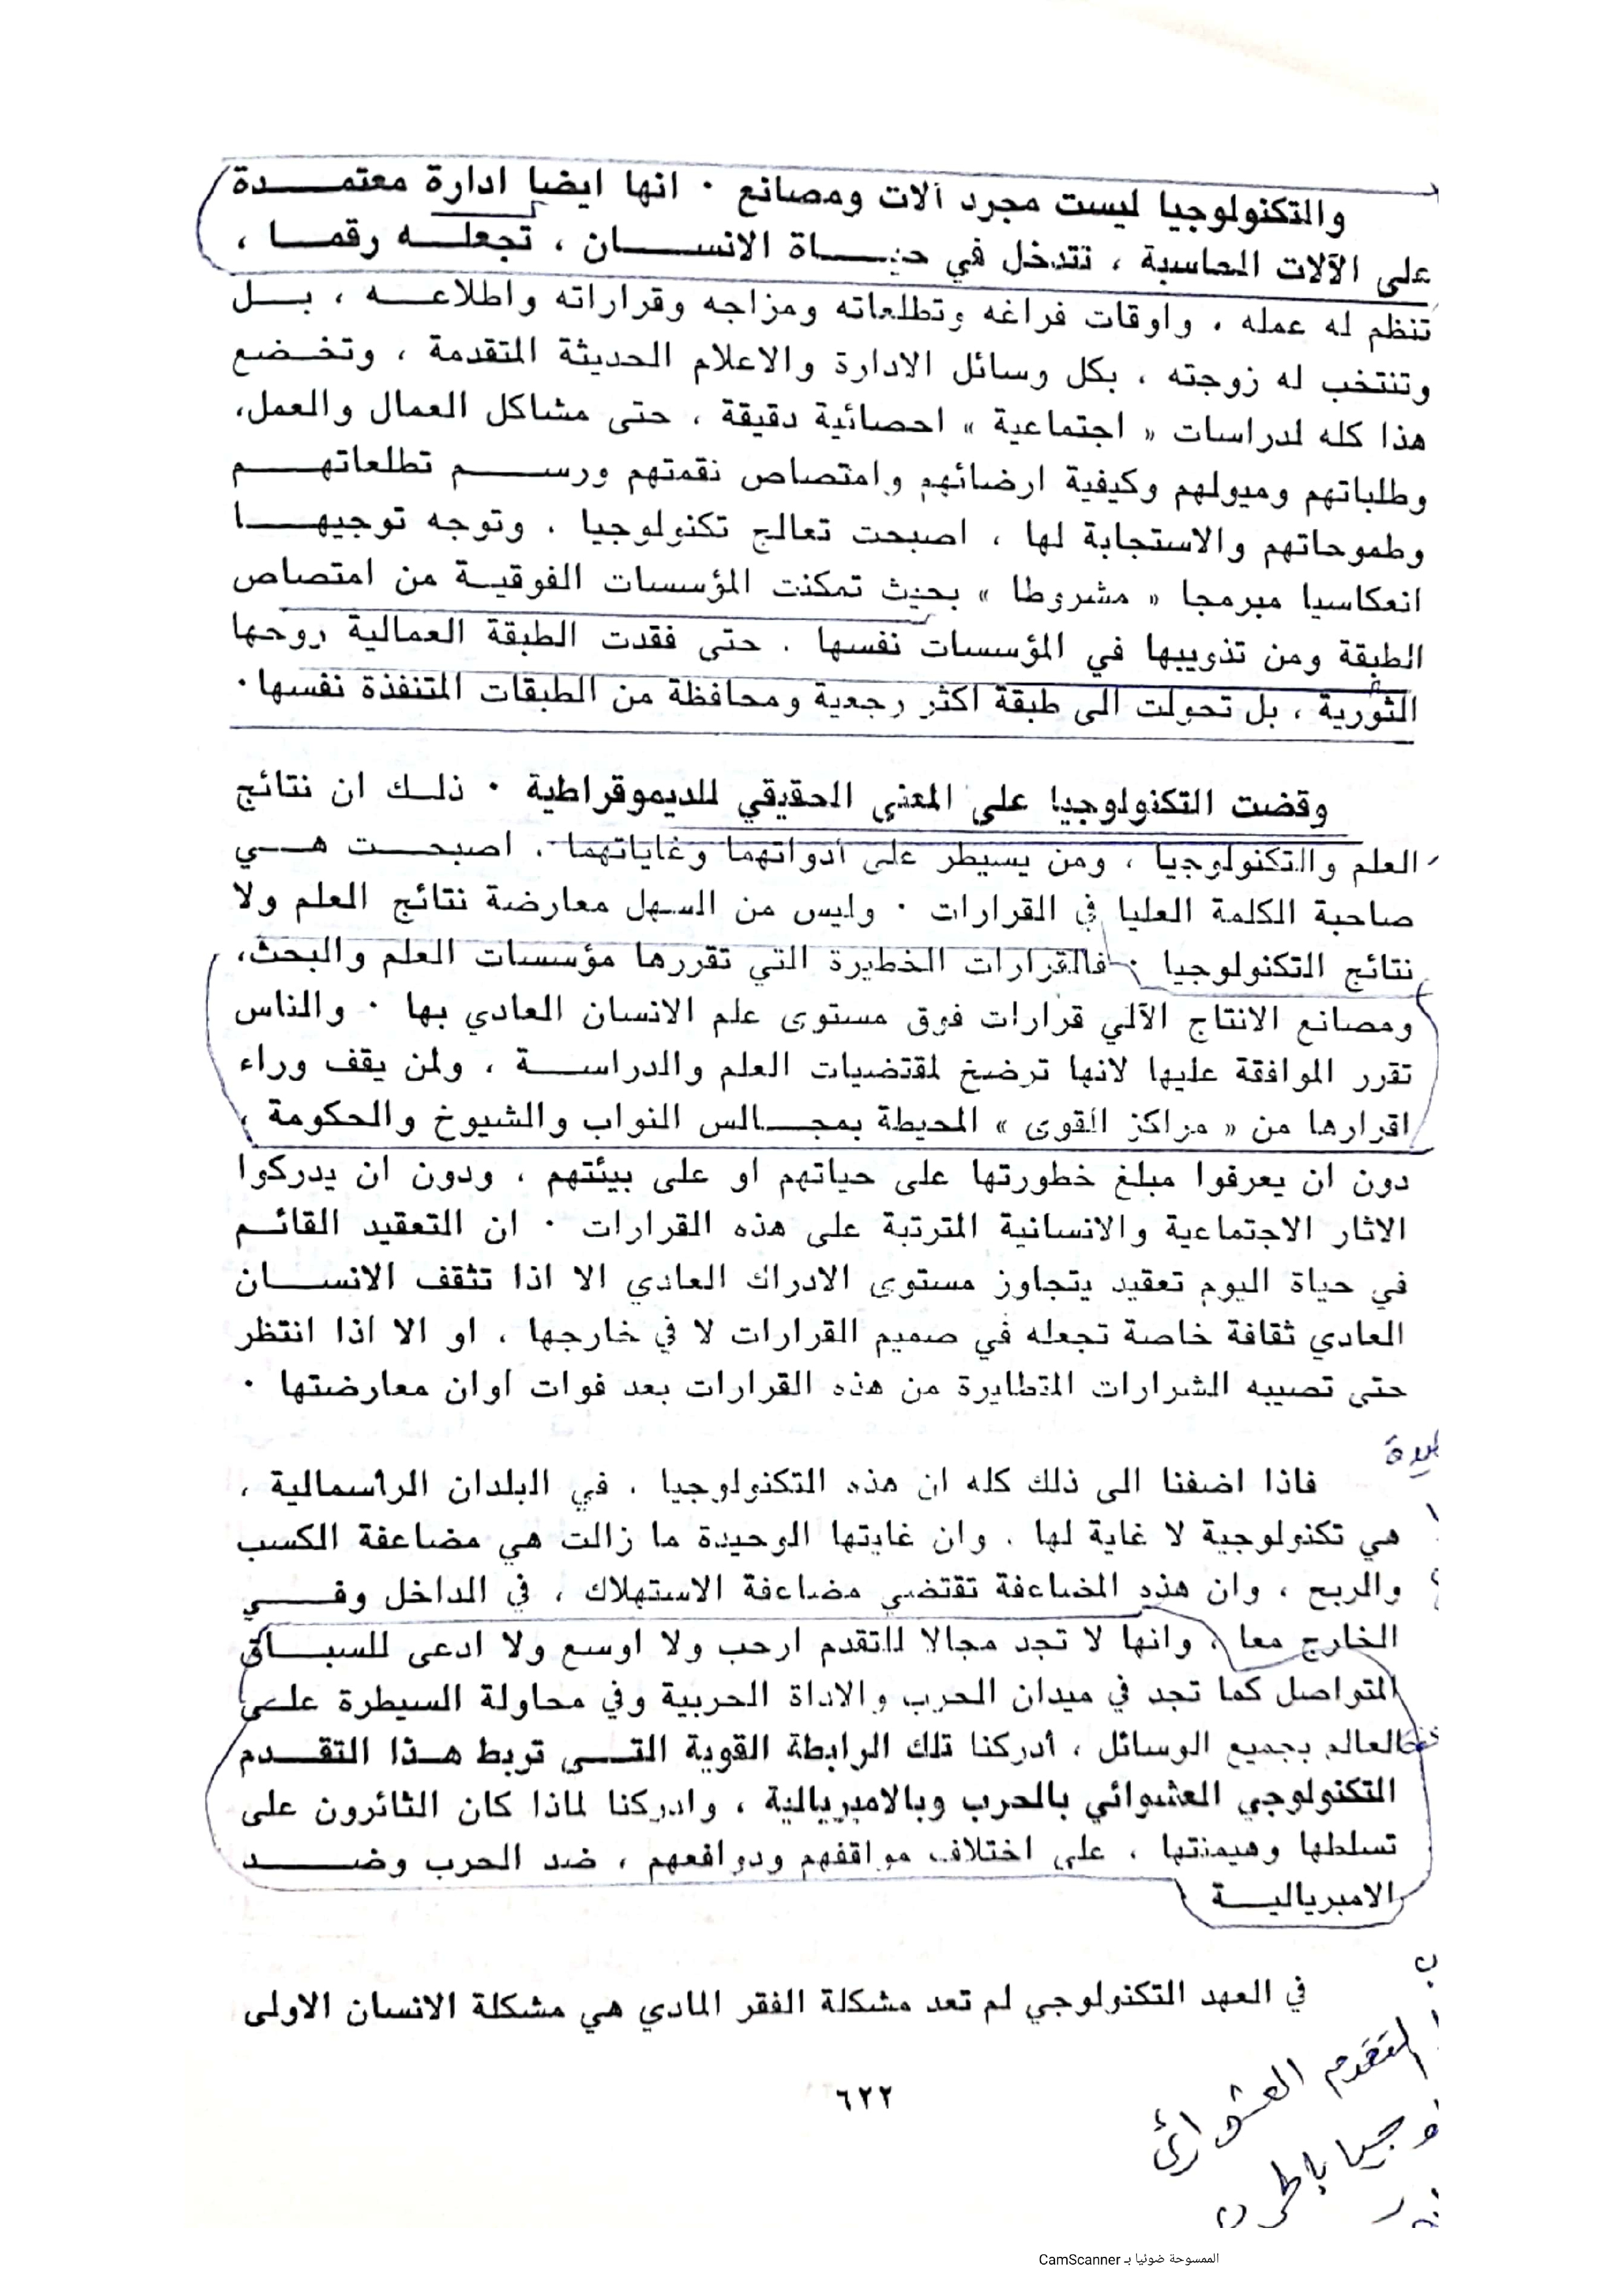 والتكنولوجيا ليست مجرد آلات ومصانع . انها ايضا ادارة معتمـــدة
على الآلات الحاسبة ، تتدخل في حيـــاة الانســـان ، تجعلــه رقمــا ،
تنظم له عمله ، واوقات فراغه وتطلعاته ومزاجه وقراراته واطلاعــه ، بــل
وتنتخب له زوجته ، بكل وسائل الادارة والاعلام الحديثة المتقدمة ، وتخـضع
هذا كله لدراسات « اجتماعية » احصائية دقيقة ، حتى مشاكل العمال والعمل،
وطلباتهم وميولهم وكيفية ارضائهم وامتصاص نقمتهم ورســـم تطلعاتهـــم
وطموحاتهم والاستجابة لها ، اصبحت تعالج تكنولوجيا ، وتوجه توجيهـــا
انعكاسيا مبرمجا « مشروطا » بحيث تمكنت المؤسسات الفوقيــة من امتصاص
الطبقة ومن تذويبها في المؤسسات نفسها . حتى فقدت الطبقة العمالية روحها
الثورية ، بل تحولت الى طبقة اكثر رجعية ومحافظة من الطبقات المتنفذة نفسها .
وقضت التكنولوجيا على المعنى الحقيقي للديموقراطية . ذلــك ان نتائج
العلم والتكنولوجيا ، ومن يسيطر على أدواتهما وغاياتهما ، اصبحـــت هـــي
صاحبة الكلمة العليا في القرارات . وليس من السهل معارضة نتائج العلم ولا
نتائج التكنولوجيا . فالقرارات الخطيرة التي تقررها مؤسسات العلم والبحث،
ومصانع الانتاج الآلي قرارات فوق مستوى علم الانسان العادي بها . والناس
تقرر الموافقة عليها لانها ترضخ لمقتضيات العلم والدراســـة ، ولمن يقف وراء
اقرارها من « مراكز القوى » المحيطة بمجـــالس النواب والشيوخ والحكومة ،
دون ان يعرفوا مبلغ خطورتها على حياتهم او على بيئتهم ، ودون ان يدركوا
الاثار الاجتماعية والانسانية المترتبة على هذه القرارات . ان التعقيد القائــم
في حياة اليوم تعقيد يتجاوز مستوى الادراك العادي الا اذا تثقف الانســـان
العادي ثقافة خاصة تجعله في صميم القرارات لا في خارجها ، او الا اذا انتظر
حتى تصيبه الشرارات المتطايرة من هذه القرارات بعد فوات اوان معارضتها .
فاذا اضفنا الى ذلك كله ان هذه التكنولوجيا ، في البلدان الرأسمالية ،
هي تكنولوجية لا غاية لها ، وان غايتها الوحيدة ما زالت هي مضاعفة الكسب
والربح ، وان هذه المضاعفة تقتضي مضاعفة الاستهلاك ، في الداخل وفـــي
الخارج معا ، وانها لا تجد مجالا للتقدم ارحب ولا اوسع ولا ادعى للسبـــاق
المتواصل كما تجد في ميدان الحرب والاداة الحربية وفي محاولة السيطرة علــى
العالم بجميع الوسائل ، أدركنا تلك الرابطة القوية التـــي تربط هــذا التقــدم
التكنولوجي العشوائي بالحرب وبالامبريالية ، وادركنا لماذا كان الثائرون على
تسلطها وهيمنتها ، على اختلاف مواقفهم ودوافعهم ، ضد الحرب وضـــد
الامبرياليـــة
في العهد التكنولوجي لم تعد مشكلة الفقر المادي هي مشكلة الانسان الاولى
٦٢٢
التقدم العشوائي
وجيا بالحرب
الممسوحة ضوئيا بـ CamScanner